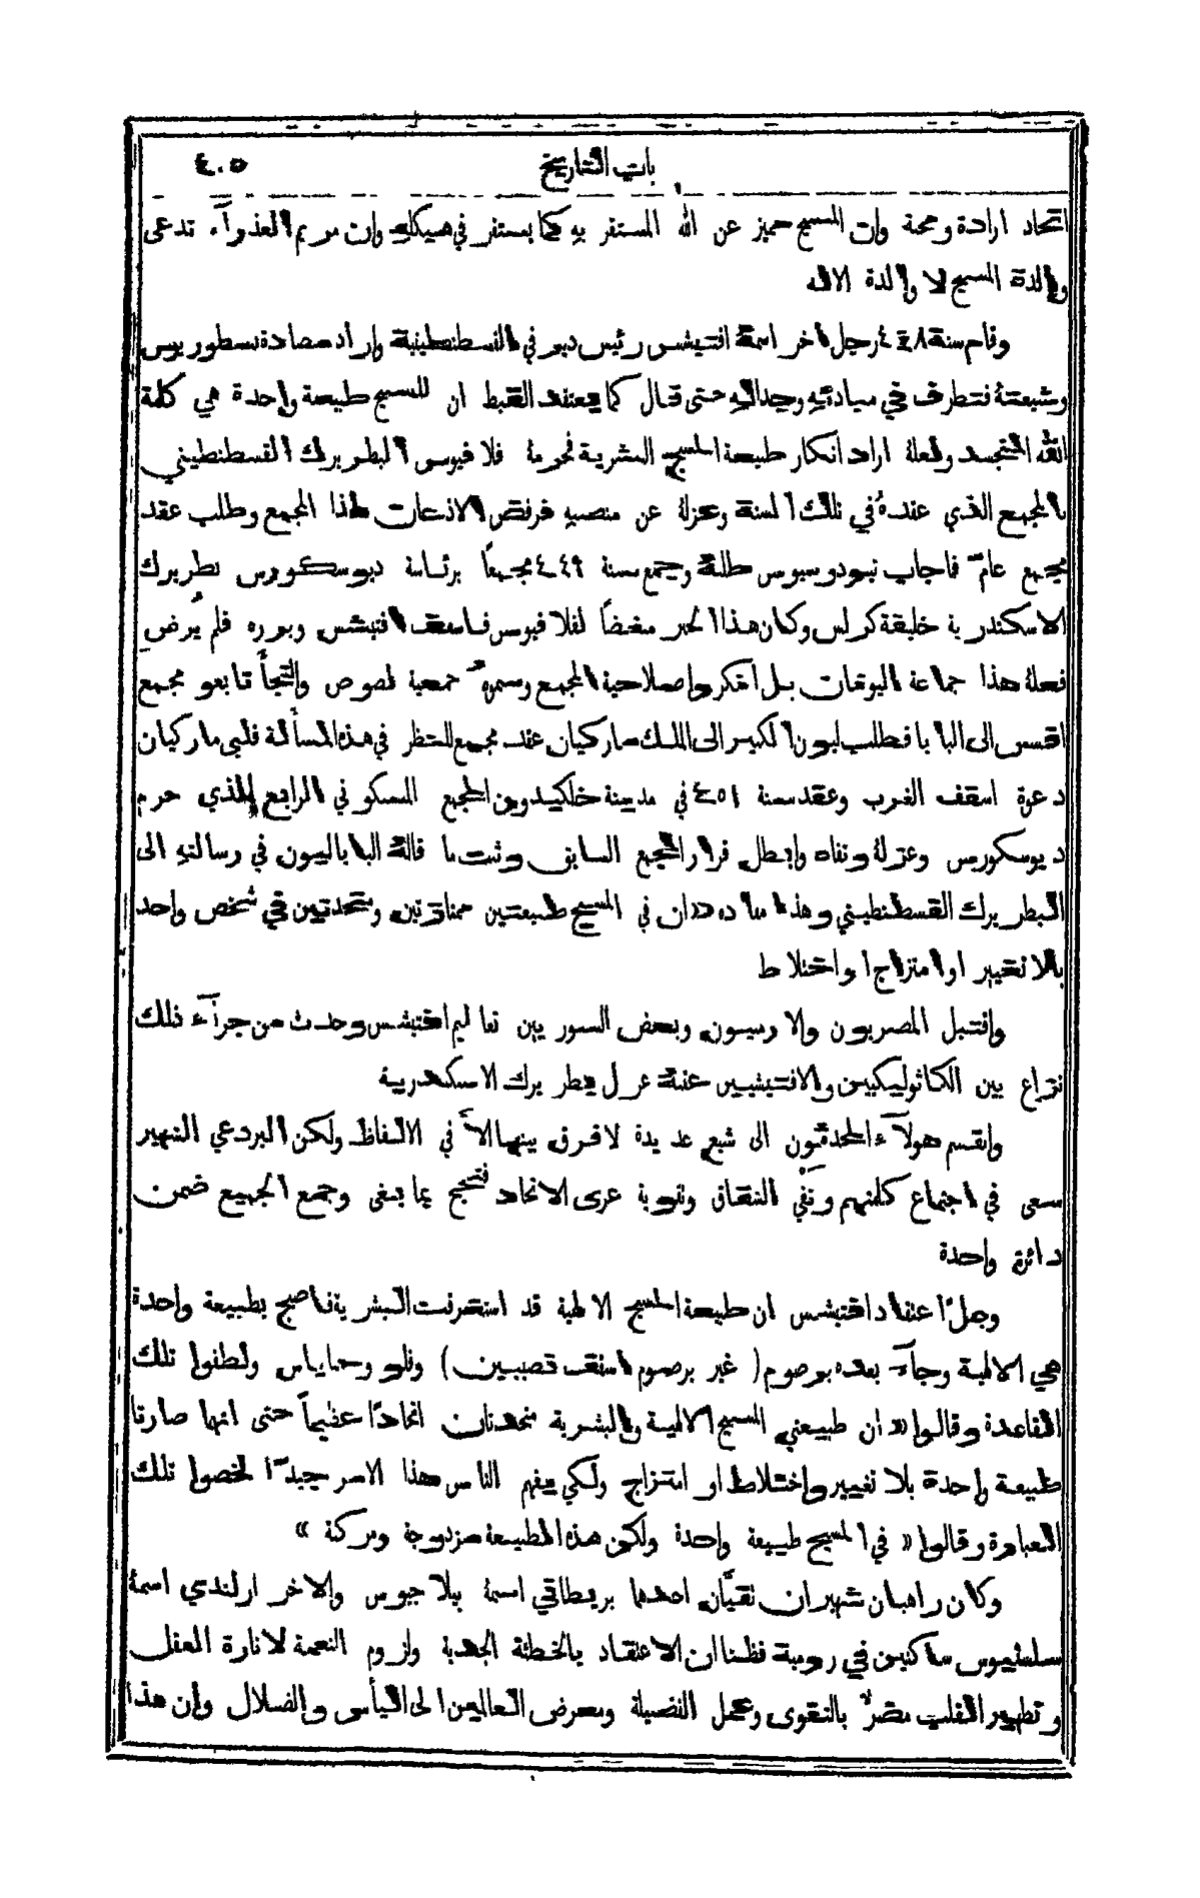 باب التاريخ ٤٠٥
اتحاد ارادة ومحبة وان المسيح مميز عن الله المستقر به كما يستقر في هيكله وان مريم العذرآء تدعى
والدة المسيح لا والدة الاله
وقام سنة ٤٤٨ رجل اخر اسمهُ افتيشس رئيس دير في القسطنطينية واراد مضادة نسطوريوس
وشيعتهُ فتطرف في مبادئهِ وجدالهِ حتى قال كما يعتقد القبط ان للمسيح طبيعة واحدة هي كلمة
الله المتجسد ولعلهُ اراد انكار طبيعة المسيح البشرية فحرمهُ فلافيوس البطريرك القسطنطيني
بالمجمع الذي عقدهُ في تلك السنة وعزلهُ عن منصبهِ فرفض الاذعان لهذا المجمع وطلب عقد
مجمع عامّ فاجاب تيودوسيوس طلبهُ وجمع سنة ٤٤٩ مجمعًا برئاسة ديوسكورس بطريرك
الاسكندرية خليفة كرلس وكان هذا الحبر مبغضًا لفلافيوس فاسعف افتيشس وبرره فلم يُرضِ
فعلهُ هذا جماعة اليونان بل انكروا صلاحية المجمع وسموهُ جمعية لصوص والتجأ تابعو مجمع
افسس الى البابا فطلب ليون الكبير الى الملك ماركيان عقد مجمع للنظر في هذه المسألة فلبى ماركيان
دعوة اسقف الغرب وعقد سنة ٤٥١ في مدينة خلكيدون المجمع المسكوني الرابع الذي حرم
ديوسكورس وعزلهُ ونفاه وابطل قرار المجمع السابق وثبت ما قالهُ البابا ليون في رسالتهِ الى
البطريرك القسطنطيني وهذا مفاده «ان في المسيح طبيعتين ممتازتين ومتحدتين في شخص واحد
بلا تغيير او امتزاج او اختلاط
واقتبل المصريون والارمنيون وبعض السوريين تعاليم افتيشس وحدث من جرآء ذلك
نزاع بين الكاثوليكيين والافتيشيين عقبهُ عزل بطريرك الاسكندرية
وانقسم هولآء المحدثون الى شيع عديدة لا فرق بينها الاّ في الالفاظ ولكن البردعي الشهير
سعى في اجتماع كلمتهم ونفي النفاق وتقوية عرى الاتحاد فنجح بما بغى وجمع الجميع ضمن
دائرة واحدة
وجلّ اعتقاد افتيشس ان طبيعة المسيح الالهية قد استغرقت البشرية فاصبح بطبيعة واحدة
هي الالهية وجآء بعده برصوم (غير برصوم اسقف نصيبين) وتلوه وسماياس ولطفوا تلك
القاعدة وقالوا «ان طبيعتي المسيح الالهية والبشرية متحدتان اتحادًا عظيماً حتى انهما صارتا
طبيعة واحدة بلا تغيير واختلاط او امتزاج ولكي يفهم الناس هذا الامر جيدًا لخصوا تلك
العبارة وقالوا « في المسيح طبيعة واحدة ولكن هذه الطبيعة مزدوجة ومركبة »
وكان راهبان شهيران تقيَّان احدهما بريطاني اسمهُ بيلاجيوس والاخر ارلندي اسمهُ
سلستيوس ساكنين في رومية فظنا ان الاعتقاد بالخطئة الجدية ولزوم النعمة لانارة العقل
وتطهير القلب مضرٌّ بالتقوى وعمل الفضيلة ومعرض العالمين الى اليأس والضلال وان هذا